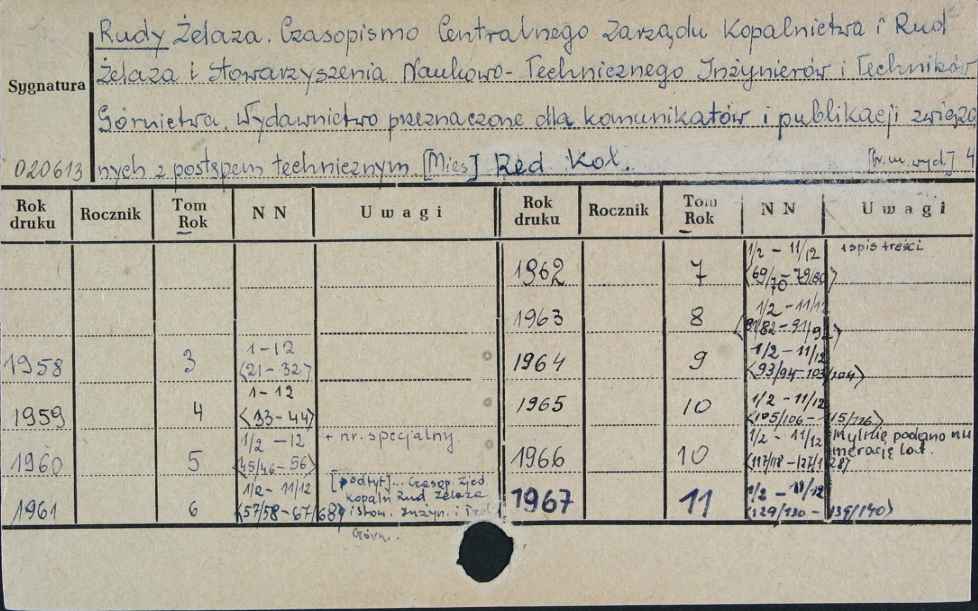 Rudy Żelaza. Czasopismo Centralnego Zarządu Kopalnictwa i Rud
Żelaza i Stowarzyszenia Naukowo-Technicznego Inżynierów i Techników
Sygnatura
Górnictwa. Wydawnictwo przeznaczone dla komunikatów i publikacji związa
020613 nych z postępem technicznym [Mies] Red. Kol. [br.m.wyd.] 4
Rok druku Rocznik Tom Rok NN Uwagi Rok druku Rocznik Tom Rok NN Uwagi
1962 7 1/2 - 11/12 + spis treści
<69/70 - 79/80>
1963 8 1/2 - 11/12
<81/82 - 91/92>
1958 3 1-12
<21-32>
1964 9 1/2 - 11/12
<93/94 - 103/104>
1959 4 1-12
<33-44>
1965 10 1/2 - 11/12
<105/106 - 115/116>
1960 5 1/2 - 12 + nr. specjalny
<45/46 - 56>
1966 10 1/2 - 11/12 Mylnie podano nu
<117/118 - 127/128> merację
1961 6 1/2 - 11/12 [podtyt]... Czasop. Zjed
<57/58 - 67/68> kopaln Rud Żelaza
i Stow. Inżyn. i Tech
Górn..
1967 11 1/2 - 11/12
<129/130 - 139/140>